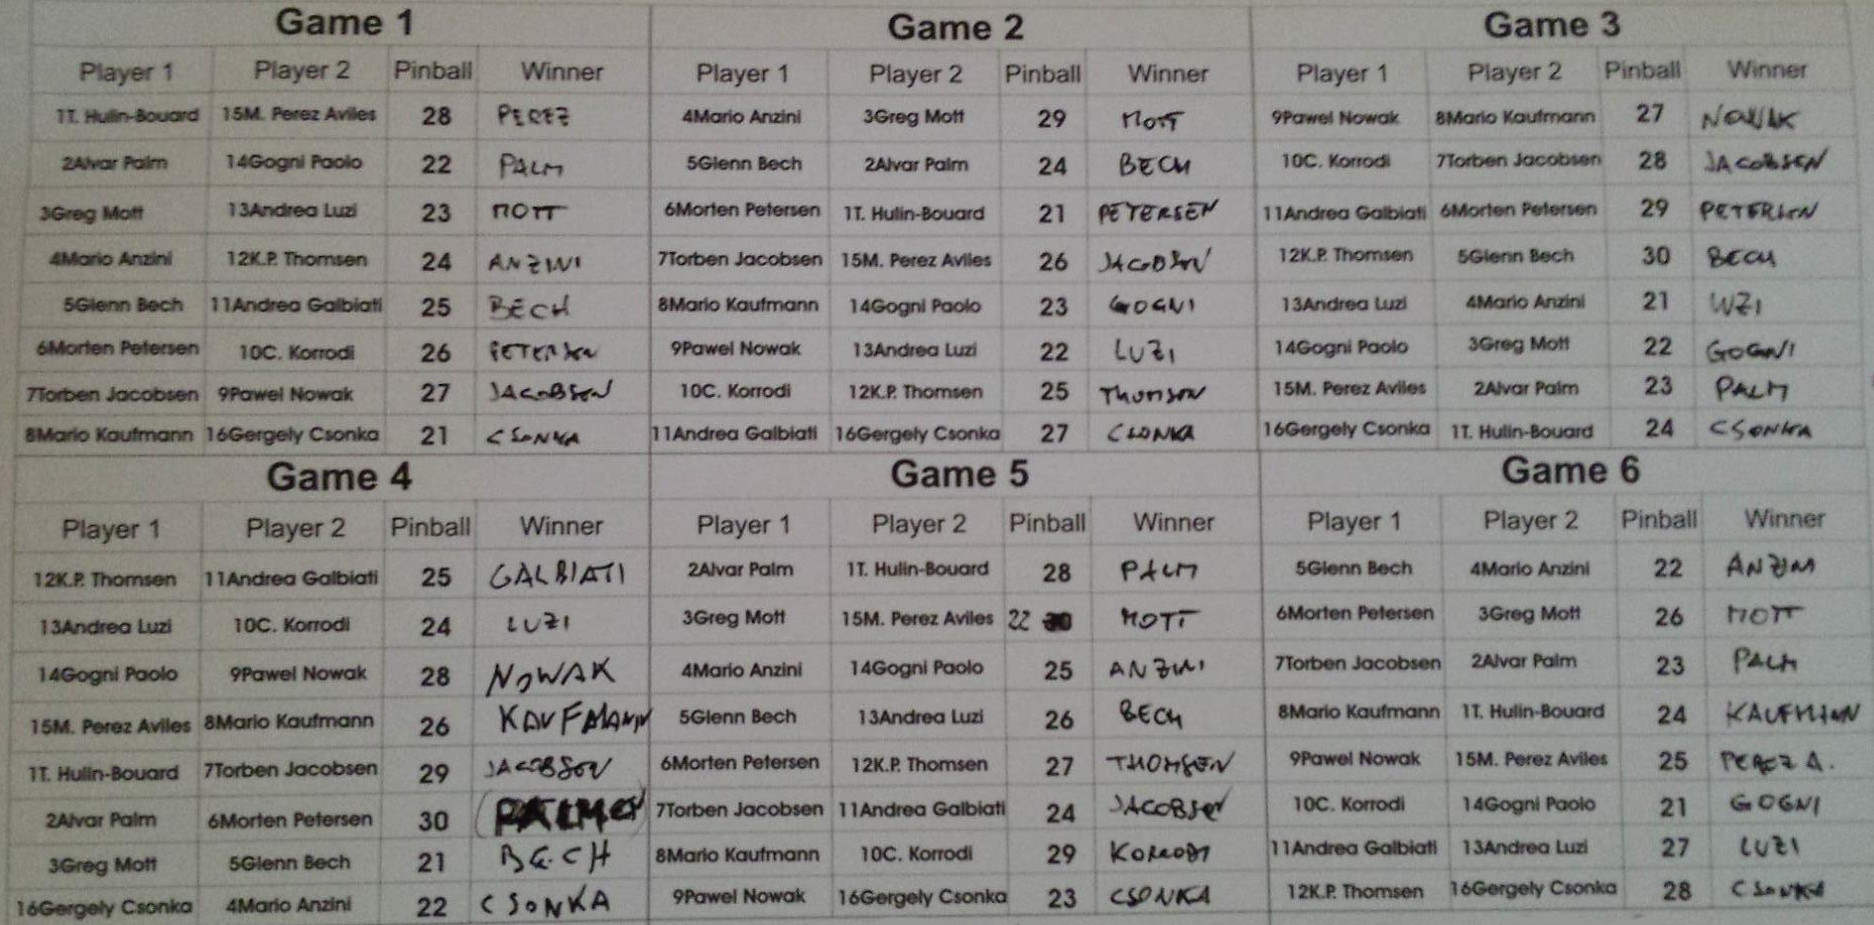 Game 1
Player 1 Player 2 Pinball Winner
1T. Hulin-Bouard 15M. Perez Aviles 28 PEREZ
2Alvar Palm 14Gogni Paolo 22 PALM
3Greg Mott 13Andrea Luzi 23 MOTT
4Mario Anzini 12K.P. Thomsen 24 ANZINI
5Glenn Bech 11Andrea Galbiati 25 BECH
6Morten Petersen 10C. Korrodi 26 PETERSEN
7Torben Jacobsen 9Pawel Nowak 27 JACOBSEN
8Mario Kaufmann 16Gergely Csonka 21 CSONKA
Game 2
Player 1 Player 2 Pinball Winner
4Mario Anzini 3Greg Mott 29 MOTT
5Glenn Bech 2Alvar Palm 24 BECH
6Morten Petersen 1T. Hulin-Bouard 21 PETERSEN
7Torben Jacobsen 15M. Perez Aviles 26 JACOBSEN
8Mario Kaufmann 14Gogni Paolo 23 GOGNI
9Pawel Nowak 13Andrea Luzi 22 LUZI
10C. Korrodi 12K.P. Thomsen 25 THOMSEN
11Andrea Galbiati 16Gergely Csonka 27 CSONKA
Game 3
Player 1 Player 2 Pinball Winner
9Pawel Nowak 8Mario Kaufmann 27 NOWAK
10C. Korrodi 7Torben Jacobsen 28 JACOBSEN
11Andrea Galbiati 6Morten Petersen 29 PETERSEN
12K.P. Thomsen 5Glenn Bech 30 BECH
13Andrea Luzi 4Mario Anzini 21 LUZI
14Gogni Paolo 3Greg Mott 22 GOGNI
15M. Perez Aviles 2Alvar Palm 23 PALM
16Gergely Csonka 1T. Hulin-Bouard 24 CSONKA
Game 4
Player 1 Player 2 Pinball Winner
12K.P. Thomsen 11Andrea Galbiati 25 GALBIATI
13Andrea Luzi 10C. Korrodi 24 LUZI
14Gogni Paolo 9Pawel Nowak 28 NOWAK
15M. Perez Aviles 8Mario Kaufmann 26 KAUFMANN
1T. Hulin-Bouard 7Torben Jacobsen 29 JACOBSEN
2Alvar Palm 6Morten Petersen 30
3Greg Mott 5Glenn Bech 21 BECH
16Gergely Csonka 4Mario Anzini 22 CSONKA
Game 5
Player 1 Player 2 Pinball Winner
2Alvar Palm 1T. Hulin-Bouard 28 PALM
3Greg Mott 15M. Perez Aviles 22 30 MOTT
4Mario Anzini 14Gogni Paolo 25 ANZINI
5Glenn Bech 13Andrea Luzi 26 BECH
6Morten Petersen 12K.P. Thomsen 27 THOMSEN
7Torben Jacobsen 11Andrea Galbiati 24 JACOBSEN
8Mario Kaufmann 10C. Korrodi 29 KORRODI
9Pawel Nowak 16Gergely Csonka 23 CSONKA
Game 6
Player 1 Player 2 Pinball Winner
5Glenn Bech 4Mario Anzini 22 ANZINI
6Morten Petersen 3Greg Mott 26 MOTT
7Torben Jacobsen 2Alvar Palm 23 PALM
8Mario Kaufmann 1T. Hulin-Bouard 24 KAUFMANN
9Pawel Nowak 15M. Perez Aviles 25 PEREZ A.
10C. Korrodi 14Gogni Paolo 21 GOGNI
11Andrea Galbiati 13Andrea Luzi 27 LUZI
12K.P. Thomsen 16Gergely Csonka 28 CSONKA